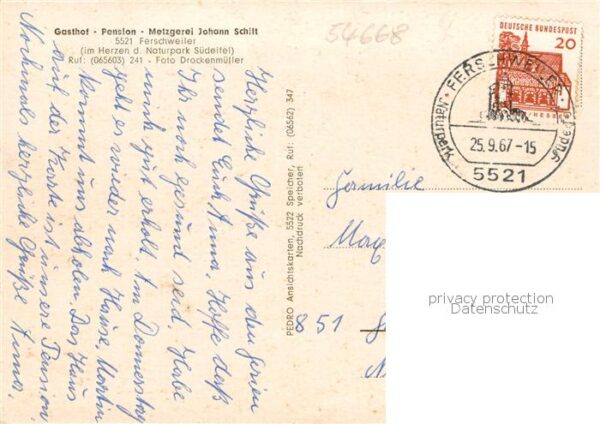 Gasthof - Pension - Metzgerei Johann Schilt
5521 Ferschweiler
(im Herzen d. Naturpark Südeifel)
Ruf: (065603) 241 - Foto Drockenmüller
54668
DEUTSCHE BUNDESPOST
20
FERSCHWEILER
Naturpark Südeifel
25.9.67-15
5521
Herzliche Grüße aus den Ferien
sendet Euch Anna. Hoffe daß
Ihr noch gesund seid. Habe
mich gut erholt. Am Donnerstag
geht es wieder nach Hause, Martin
kommt uns abholen. Das Haus
auf der Karte ist unsere Pension.
Nochmals herzliche Grüße Anna.
PEDRO Ansichtskarten, 5522 Speicher, Ruf: (06562) 347
Nachdruck verboten
Familie
851
privacy protection
Datenschutz